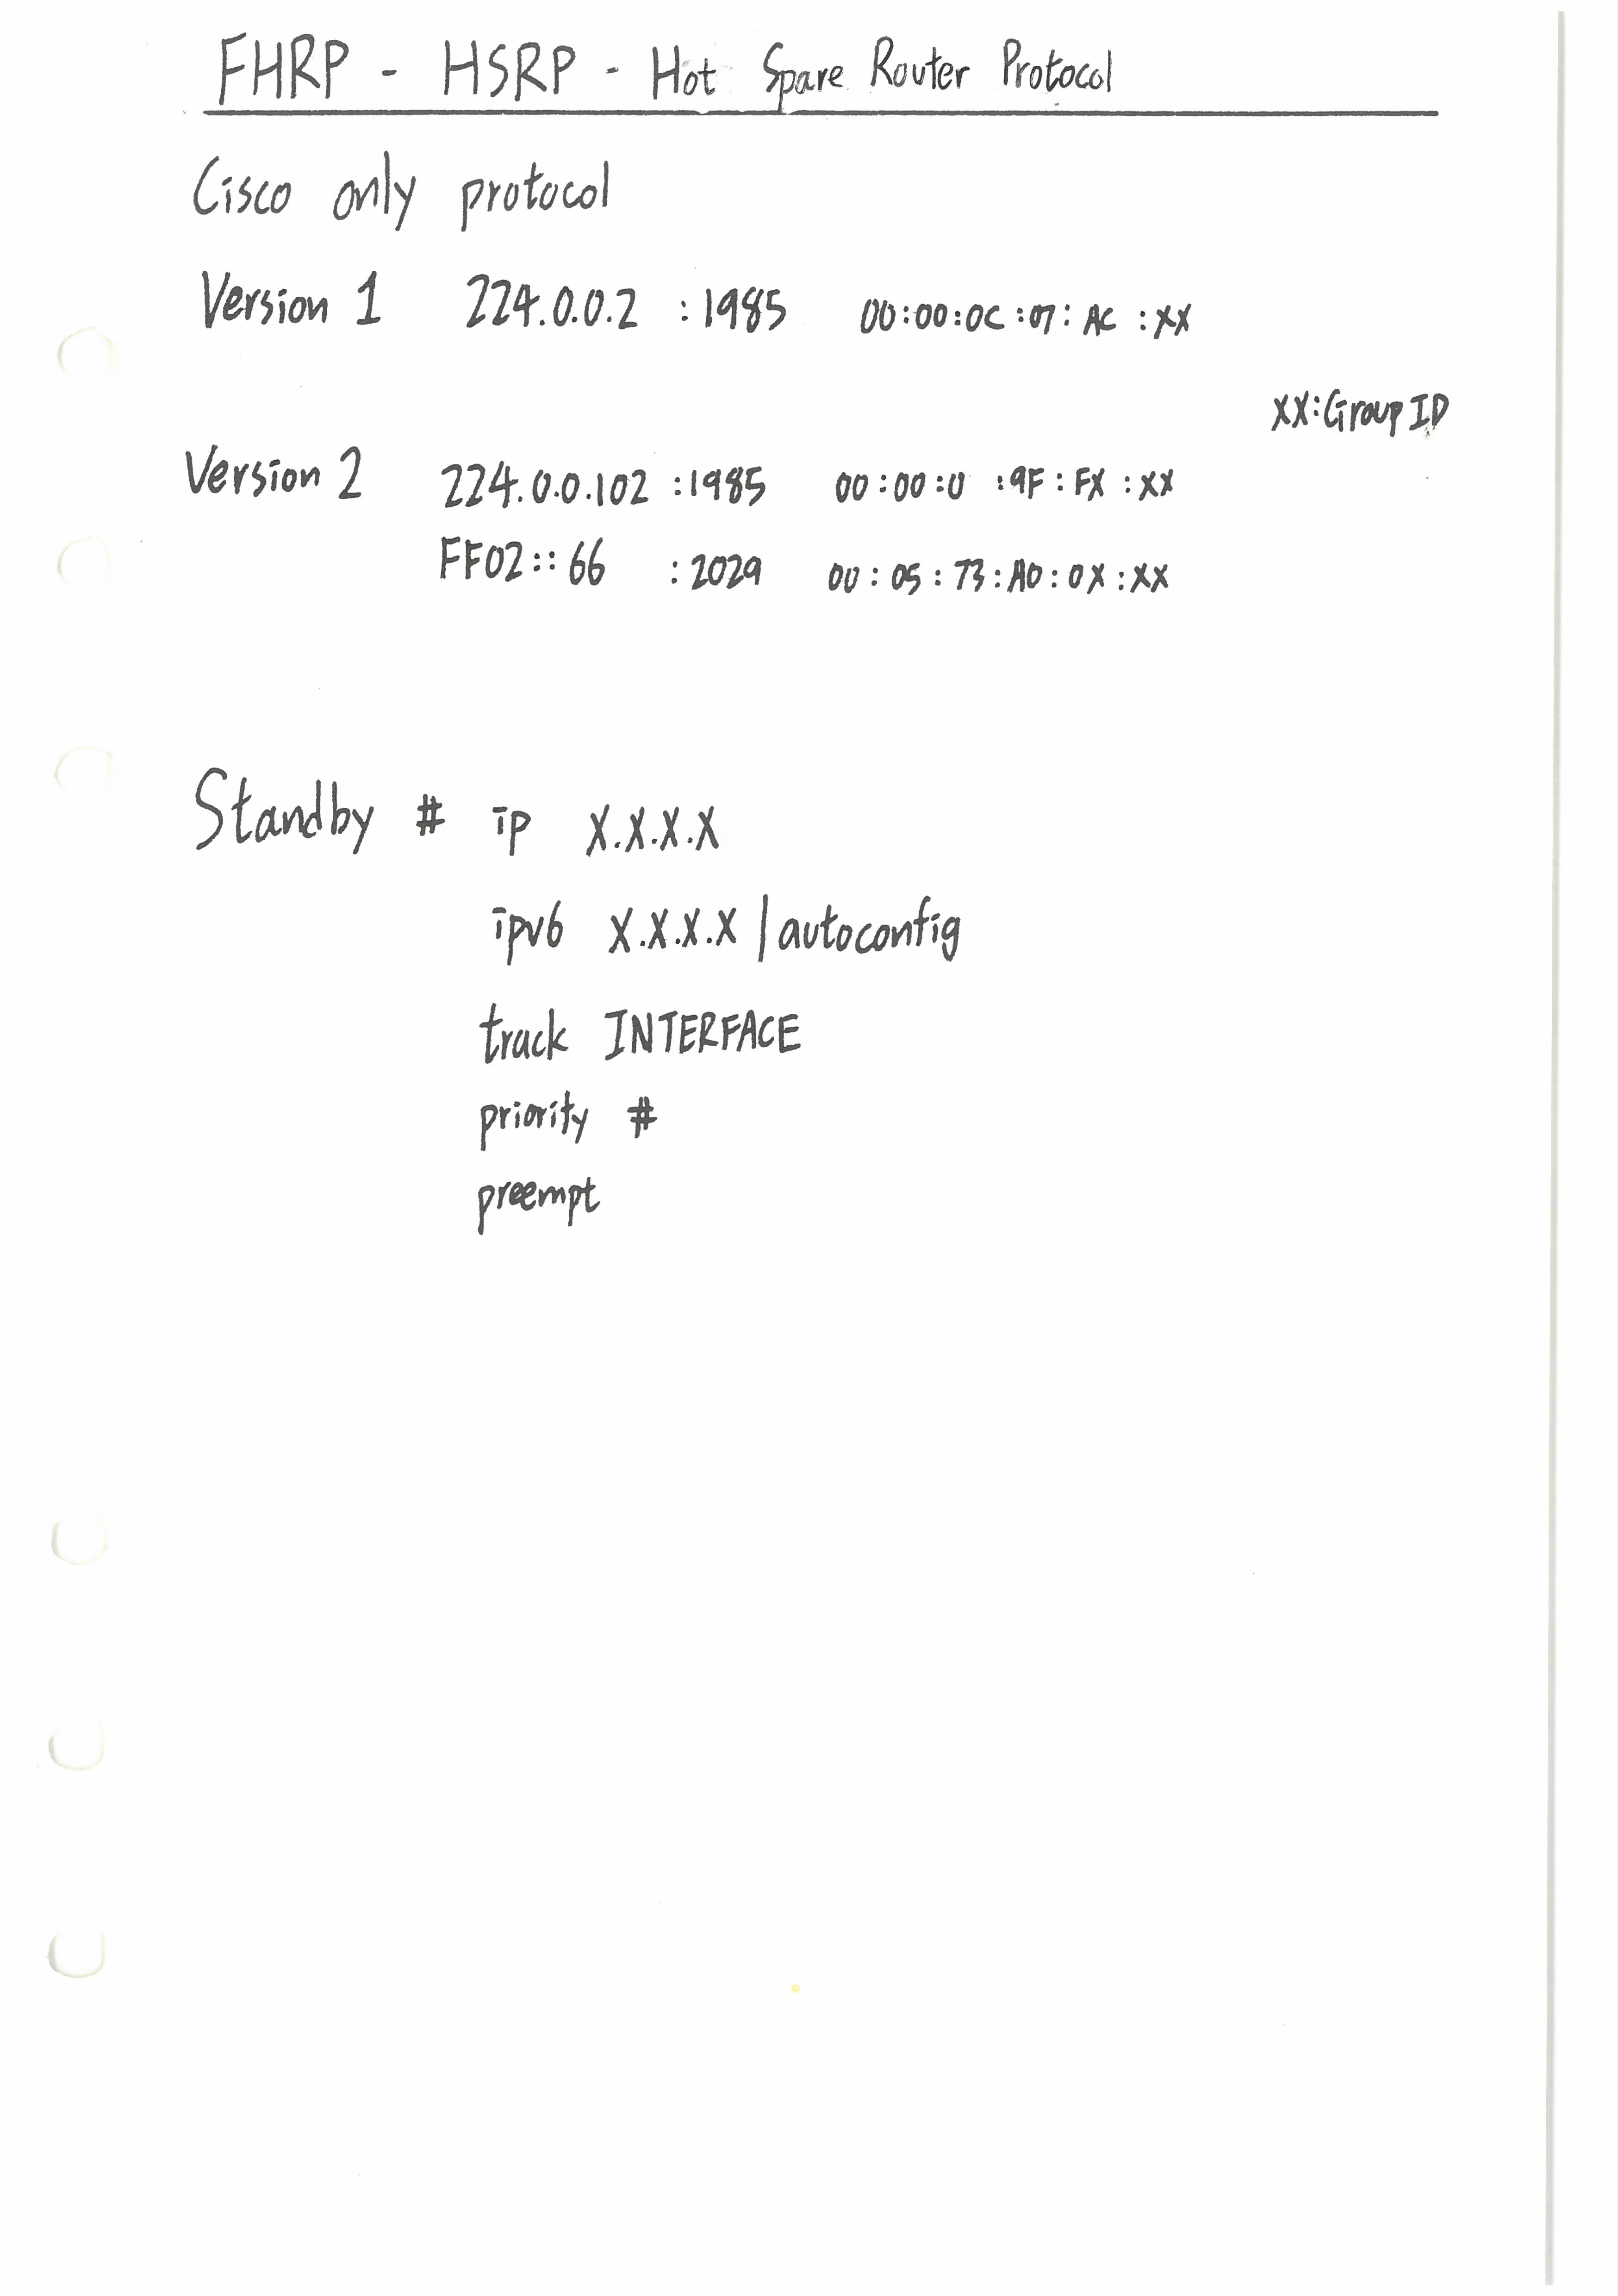 FHRP - HSRP - Hot Spare Router Protocol
Cisco only protocol
Version 1 224.0.0.2 :1985 00:00:0C:07:AC:XX
XX:Group ID
Version 2 224.0.0.102 :1985 00:00:0 :9F:FX:XX
FF02::66 :2029 00:05:73:A0:0X:XX
Standby # ip X.X.X.X
ipv6 X.X.X.X | autoconfig
track INTERFACE
priority #
preempt